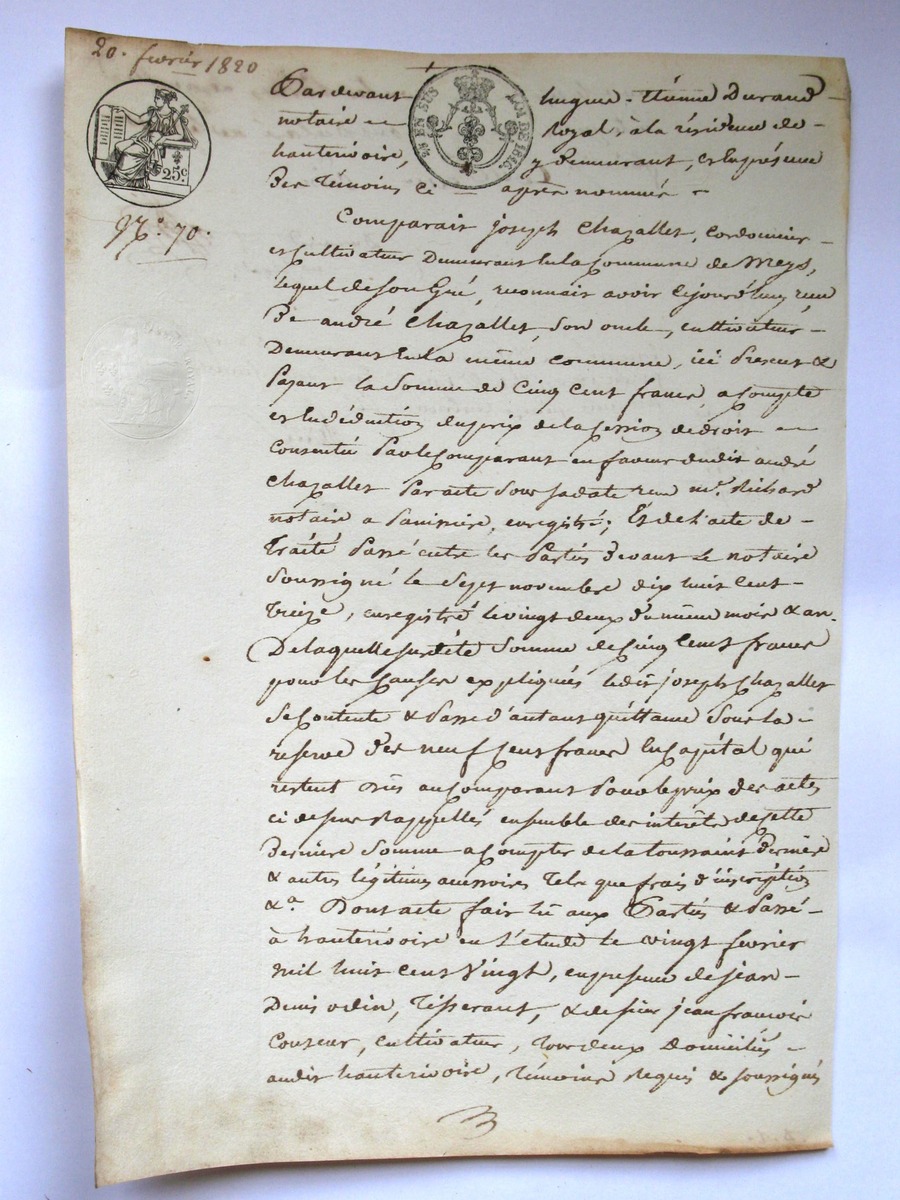 20. fevrier 1820
25c.
1/8 EN SUS LOI DE 1816.
N.o 70.
Pardevant hugue-Etienne Durand
notaire royal, à la résidence de
hauterivoire, y demeurant, et En présence
Des témoins ci après nommés
Comparait joseph Chazallet, Cordonnier
et Cultivateur Demeurant En la Commune de Meys,
lequel de son Gré, reconnait avoir cejourd'huy reçu
De andré Chazallet, son oncle, cultivateur
Demeurant En la même commune, ici Present &
Payant la Somme de Cinq cent francs, a Compte
et En déduction du prix de la Cession de droit
Consentie Par le Comparant en faveur dudit andré
Chazallet Par acte Sous sa date reçu me. Richard
notaire a Panissière, enregistré; Et de l'acte de
Traité Passé entre les Parties devant Le notaire
Soussigné le Sept novembre dix huit cent
treize, enregistré le vingt deux du même mois & an.
De laquelle susdite Somme de Cinq Cents francs
pour les Causes expliqués ledit joseph Chazallet
Se Contente & Passe d'autant quittance Sous la
reserve des neuf Cent francs En Capital qui
restent dûs au Comparant Pour le prix des actes
ci dessus Rappellés ensemble des intérêts de cette
Dernière Somme a Compter de la toussaint dernière
& autres légitimes accessoires Tels que frais d'inscription
&a. Dont acte fait lu aux Parties & Passé
à hauterivoire en l'étude le vingt fevrier
mil huit cent Vingt, en presence de jean
Denis odin, Tisserant, & de sieur jean francois
Couseur, Cultivateur, Tous deux Domiciliés
audit hauterivoire, Témoins Requis & soussignés